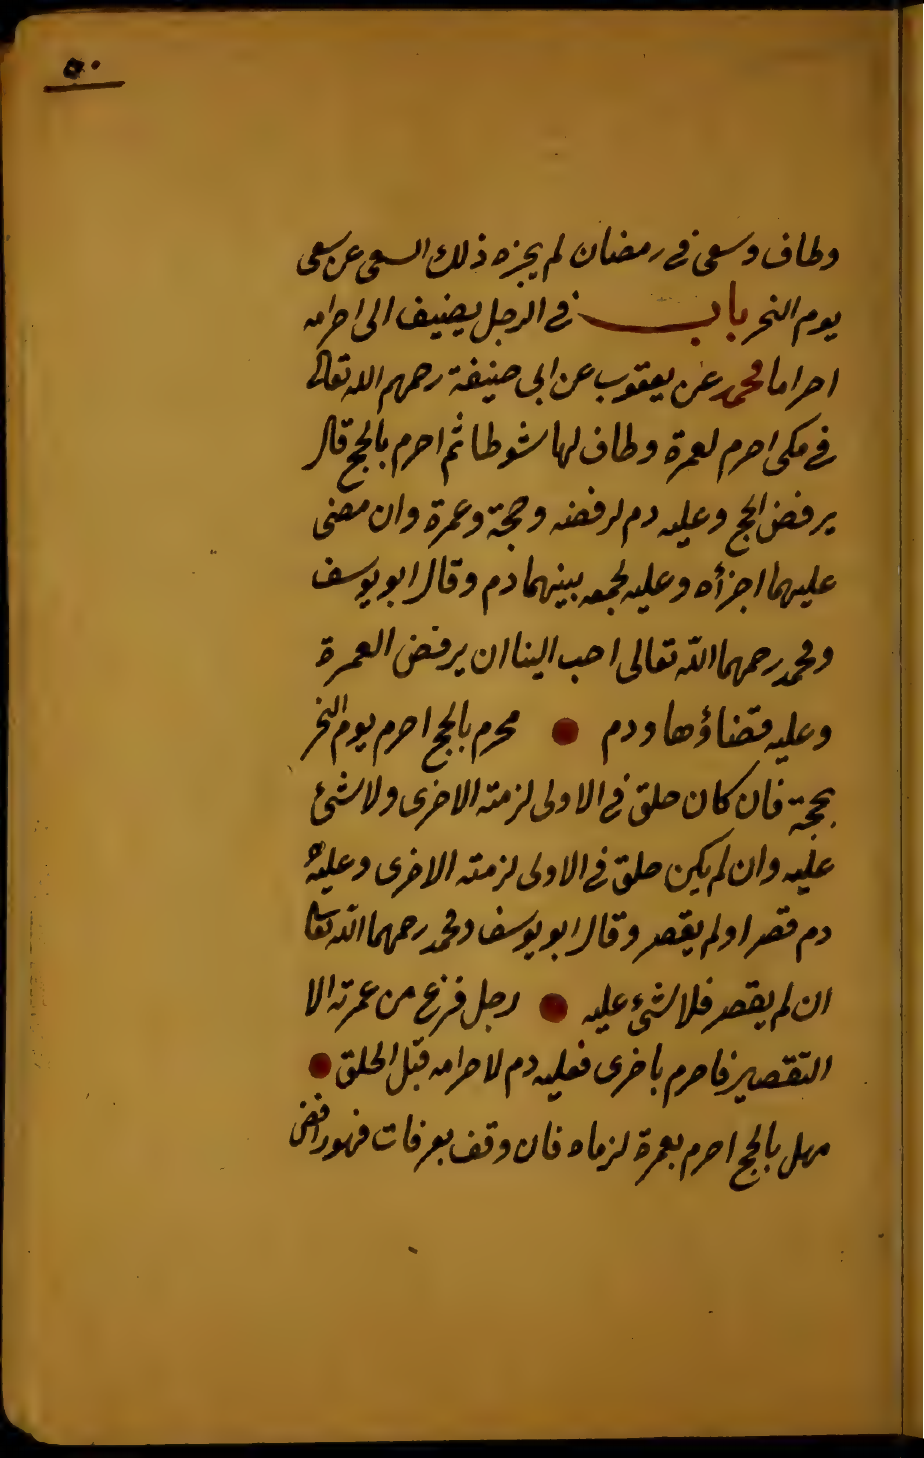 ٥٠
وطاف وسعى في رمضان لم يجزه ذلك السعى عن سعى
يوم النحر باب في الرجل يضيف الى احرامه
احراما محمد عن يعقوب عن ابى حنيفة رحمهم الله تعالى
في مكى احرم لعمرة وطاف لها شوطا ثم احرم بالحج قال
يرفض الحج وعليه دم لرفضه وحجة وعمرة وان مضى
عليهما اجزأه وعليه لجمعه بينهما دم وقال ابو يوسف
ومحمد رحمهما الله تعالى احب الينا ان يرفض العمرة
وعليه قضاؤها ودم محرم بالحج احرم يوم النحر
بحجة فان كان حلق في الاولى لزمته الاخرى ولا شئ
عليه وان لم يكن حلق في الاولى لزمته الاخرى وعليه
دم قصر او لم يقصر وقال ابو يوسف ومحمد رحمهما الله تعالى
ان لم يقصر فلا شئ عليه رجل فرغ من عمرته الا
التقصير فاحرم باخرى فعليه دم لاحرامه قبل الحلق
مهل بالحج احرم بعمرة لزماه فان وقف بعرفات فهو رافض